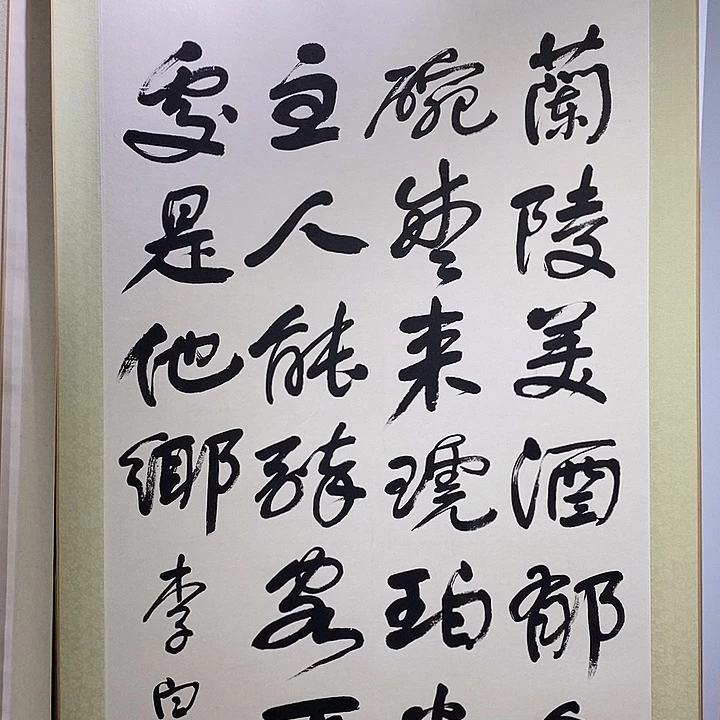 蘭陵美酒郁
碗盛来琥珀
主人能醉客
處是他鄉李白